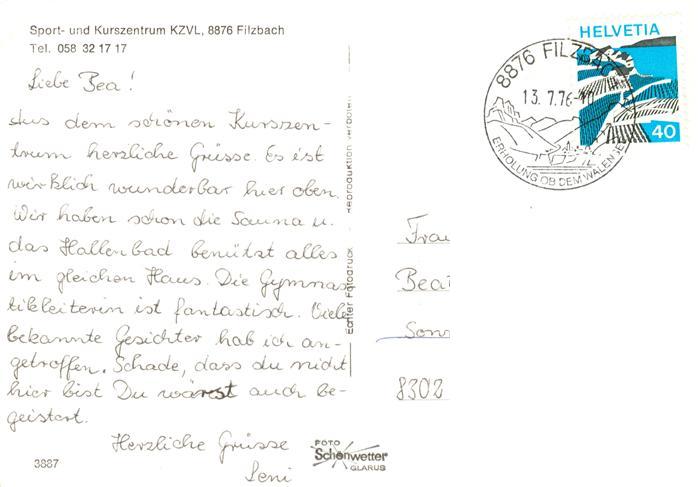 Sport- und Kurszentrum KZVL, 8876 Filzbach
Tel. 058 32 17 17
Liebe Bea!
Aus dem schönen Kurszen-
trum herzliche Grüsse. Es ist
wirklich wunderbar hier oben.
Wir haben schon die Sauna u.
das Hallenbad benützt alles
im gleichen Haus. Die Gymnas
tikleiterin ist fantastisch. Viele
bekannte Gesichter hab ich an-
getroffen. Schade, dass du nicht
hier bist Du wärest auch be-
geistert.
Herzliche Grüsse
Leni
3887
FOTO
Schönwetter
GLARUS
Reproduktion verboten
Echter Fotodruck
HELVETIA
40
8876 FILZBACH
13.7.76
ERHOLUNG OB DEM WALENSEE
Frau
Bea
Sonn
8302